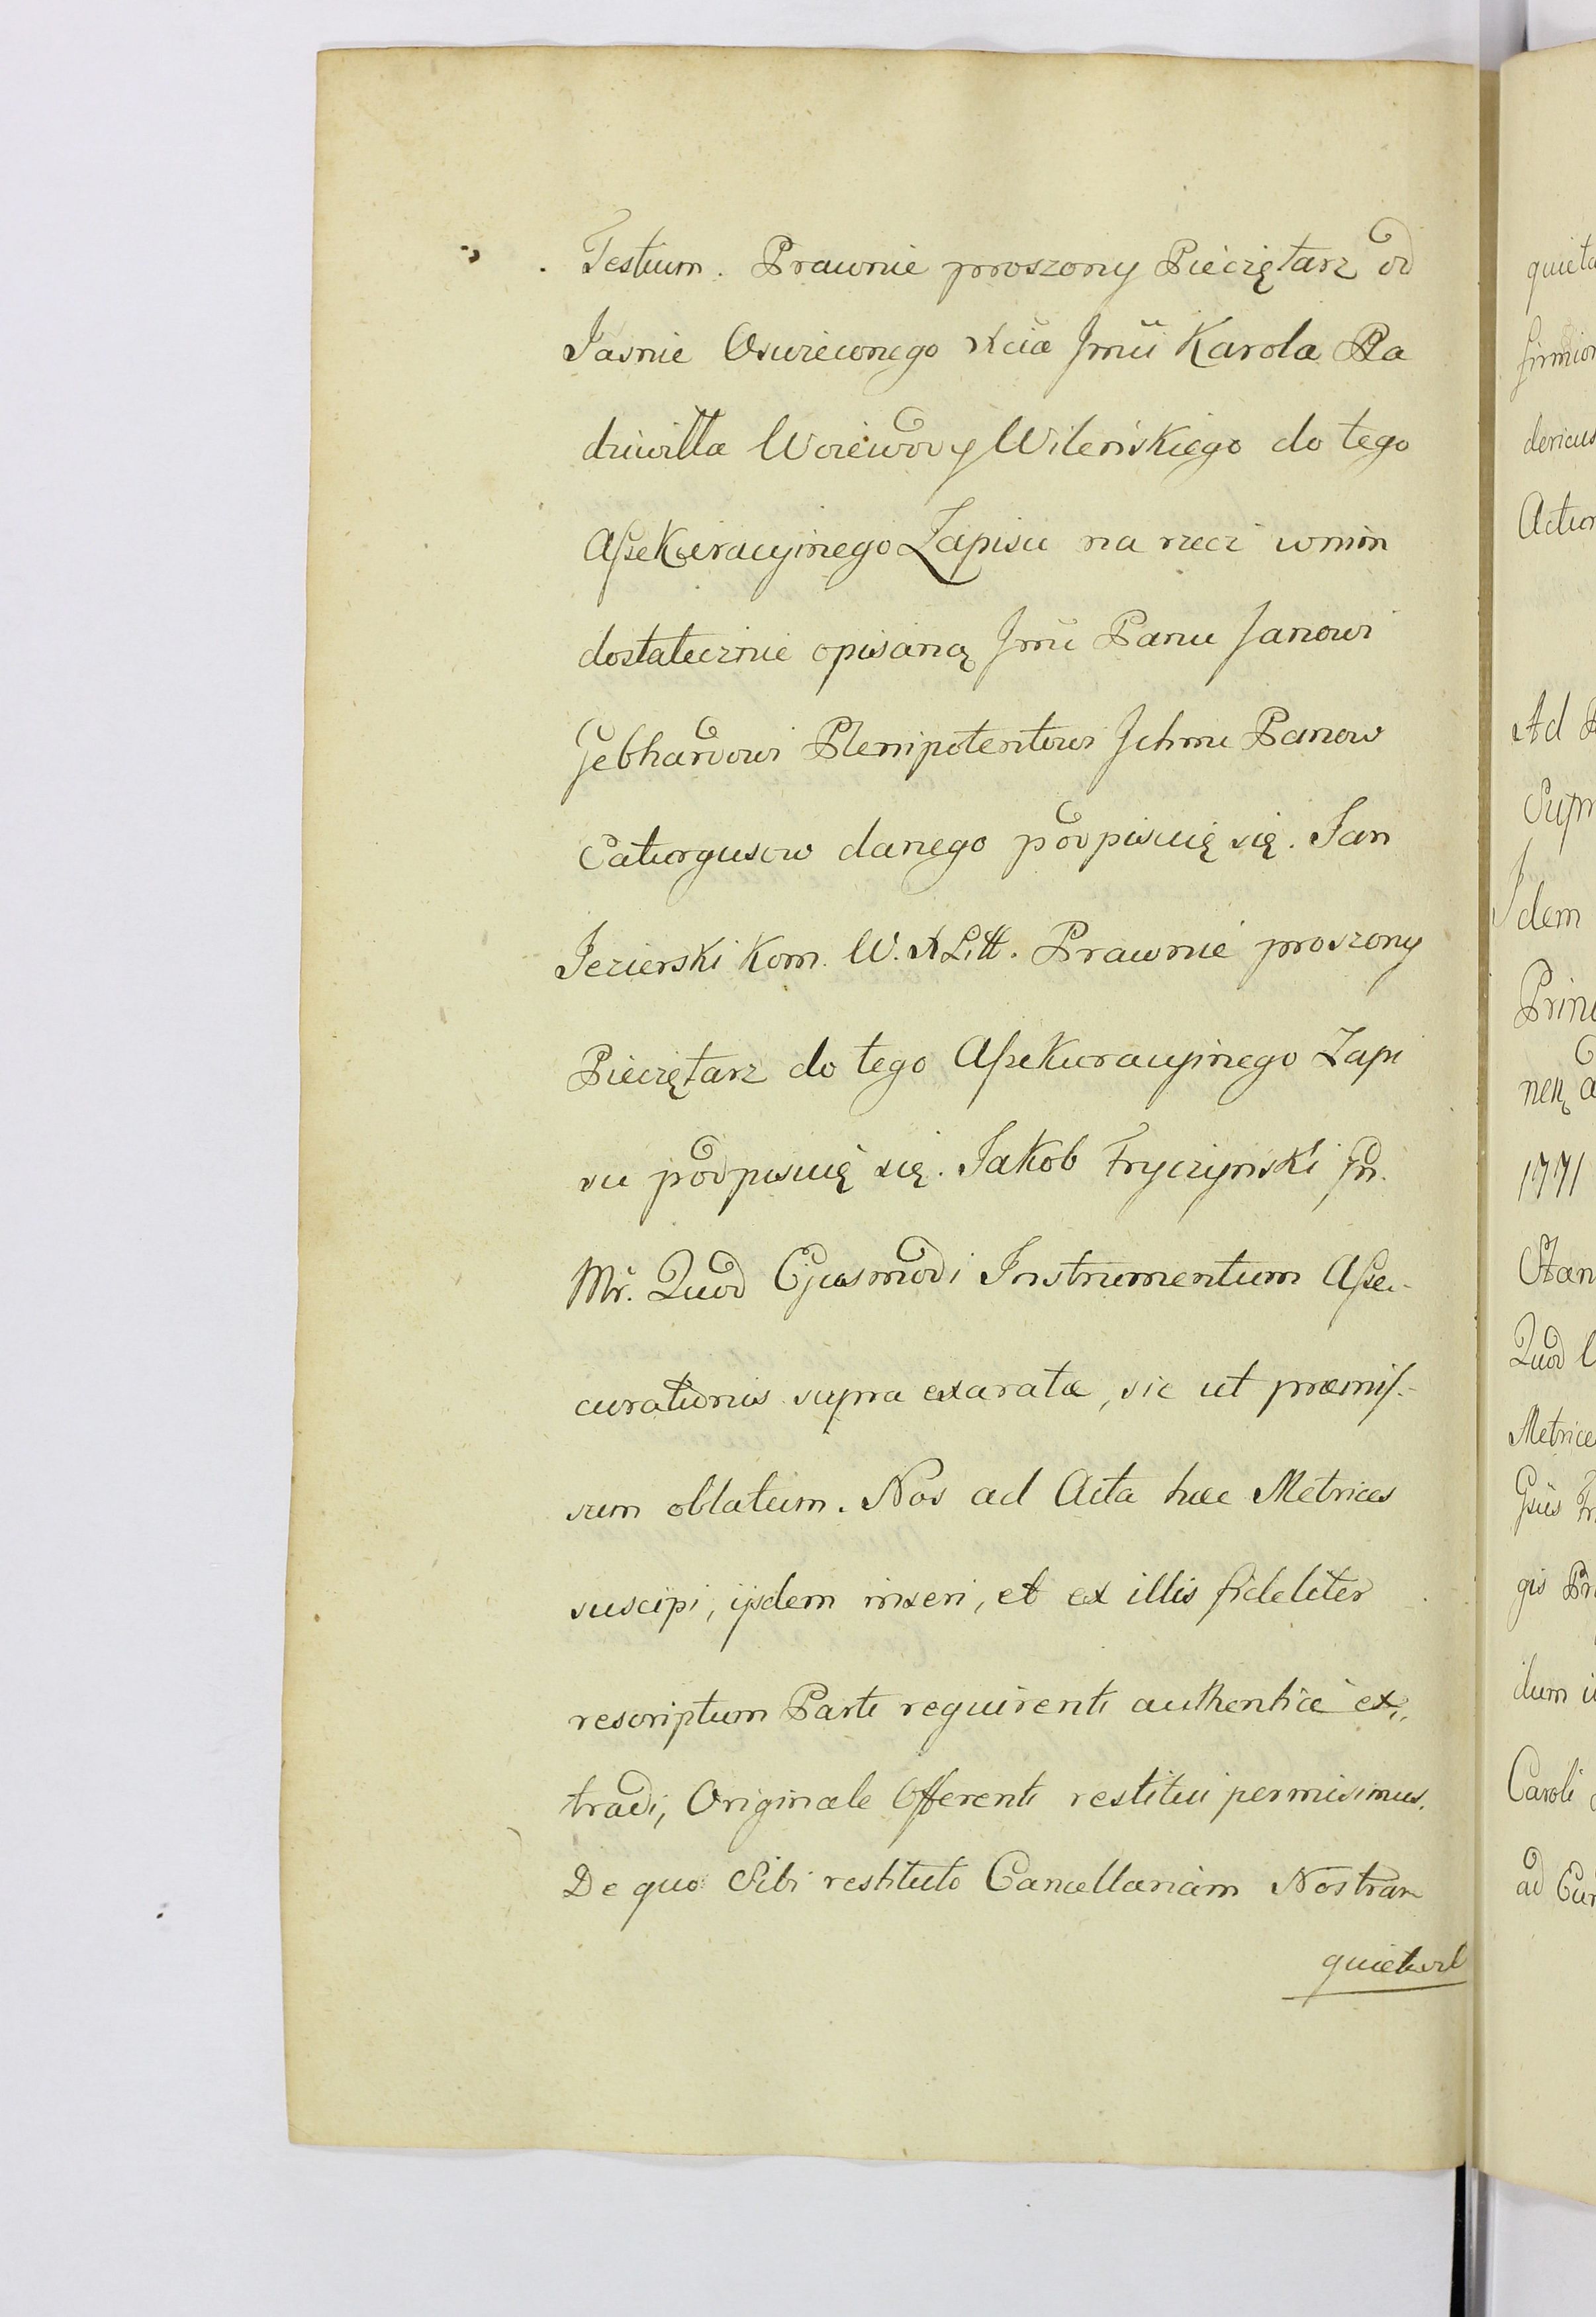 Testium. Prawnie proszony Pieczętarz od
Jasnie Oswieconego Xcia Jmci Karola Ra
dziwiłła Woiewody Wileńskiego do tego
Assekuracyinego Zapisu na rzecz wnim
dostatecznie opisaną Jmć Panu Janowi
Gebhardowi Plenipotentowi Ichmć Panow
Caturgusow danego podpisuię się. Jan
Jezierski Kom. W. X Litt. Prawnie proszony
Pieczętarz do tego Assekuracyinego Zapi
su podpisuię się. Jakob Fryczyński
Mr. Quod Ejusmodi Instrumentum Asse-
curationis supra exaratæ, sic ut præmis-
sum oblatum. Nos ad Acta hæc Metrices
suscipi, ijsdem inseri, et ex illis fideliter
rescriptum Parti requirenti authentice ex„
tradi, Originale Offerenti restitui permisimus.
De quo Sibi restituto Cancellariam Nostram
quietavit
quieta
firmior
dericus
Action
Ad
Supr
Idem
Prin
nen
1771
Stan
Quod
Metrice
Gsiis
gis
dum
Caroli
ad Cur